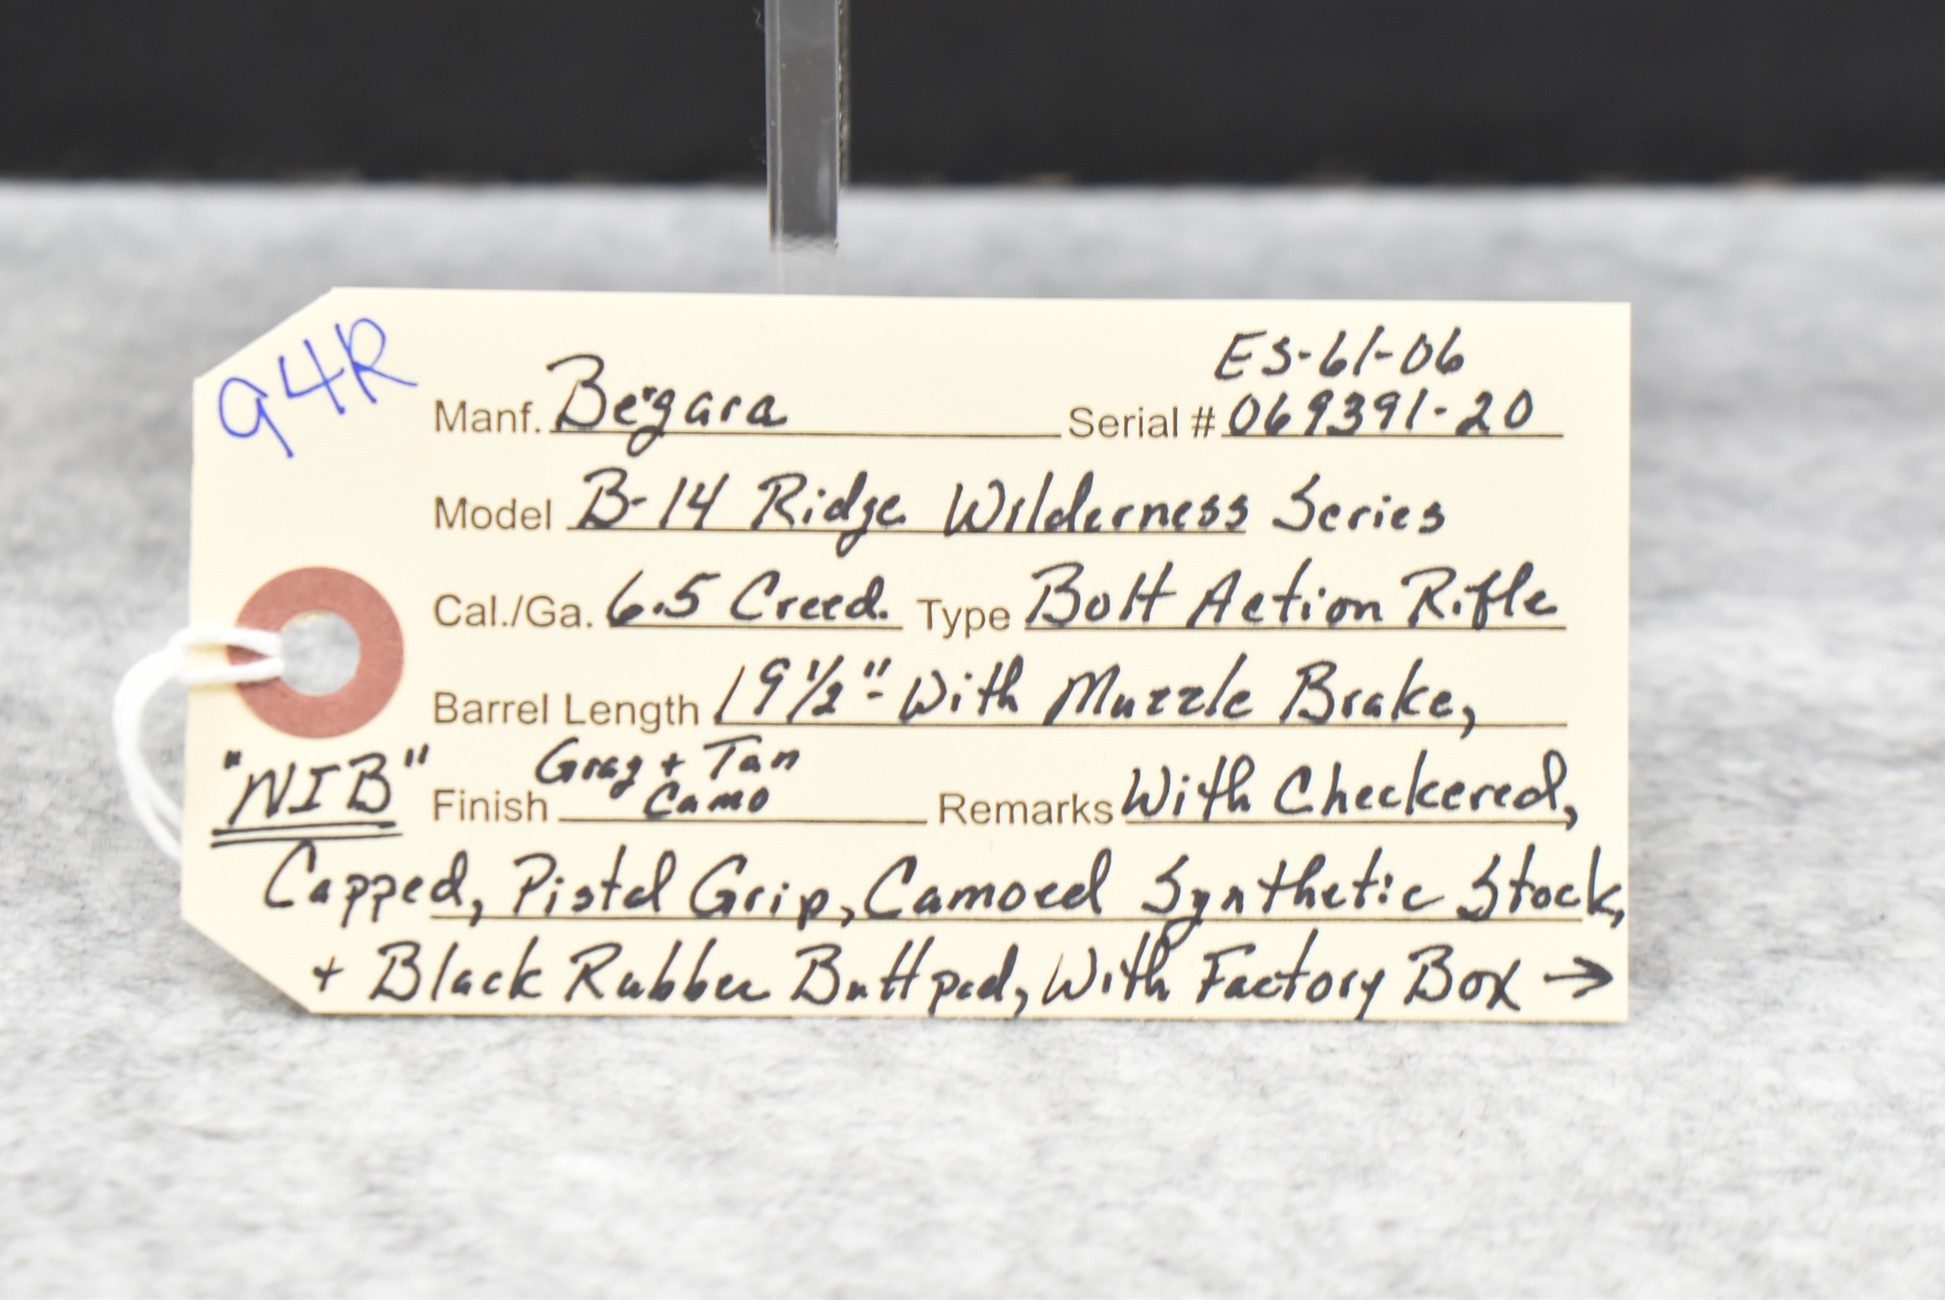 94R
ES-61-06
Manf. Begara Serial # 069391-20
Model B-14 Ridge Wilderness Series
Cal./Ga. 6.5 Creed. Type Bolt Action Rifle
Barrel Length 19 1/2" - With Muzzle Brake,
"NIB" Finish Gray + Tan Camo Remarks With Checkered,
Capped, Pistol Grip, Camoed Synthetic Stock,
+ Black Rubber Buttpad, With Factory Box →